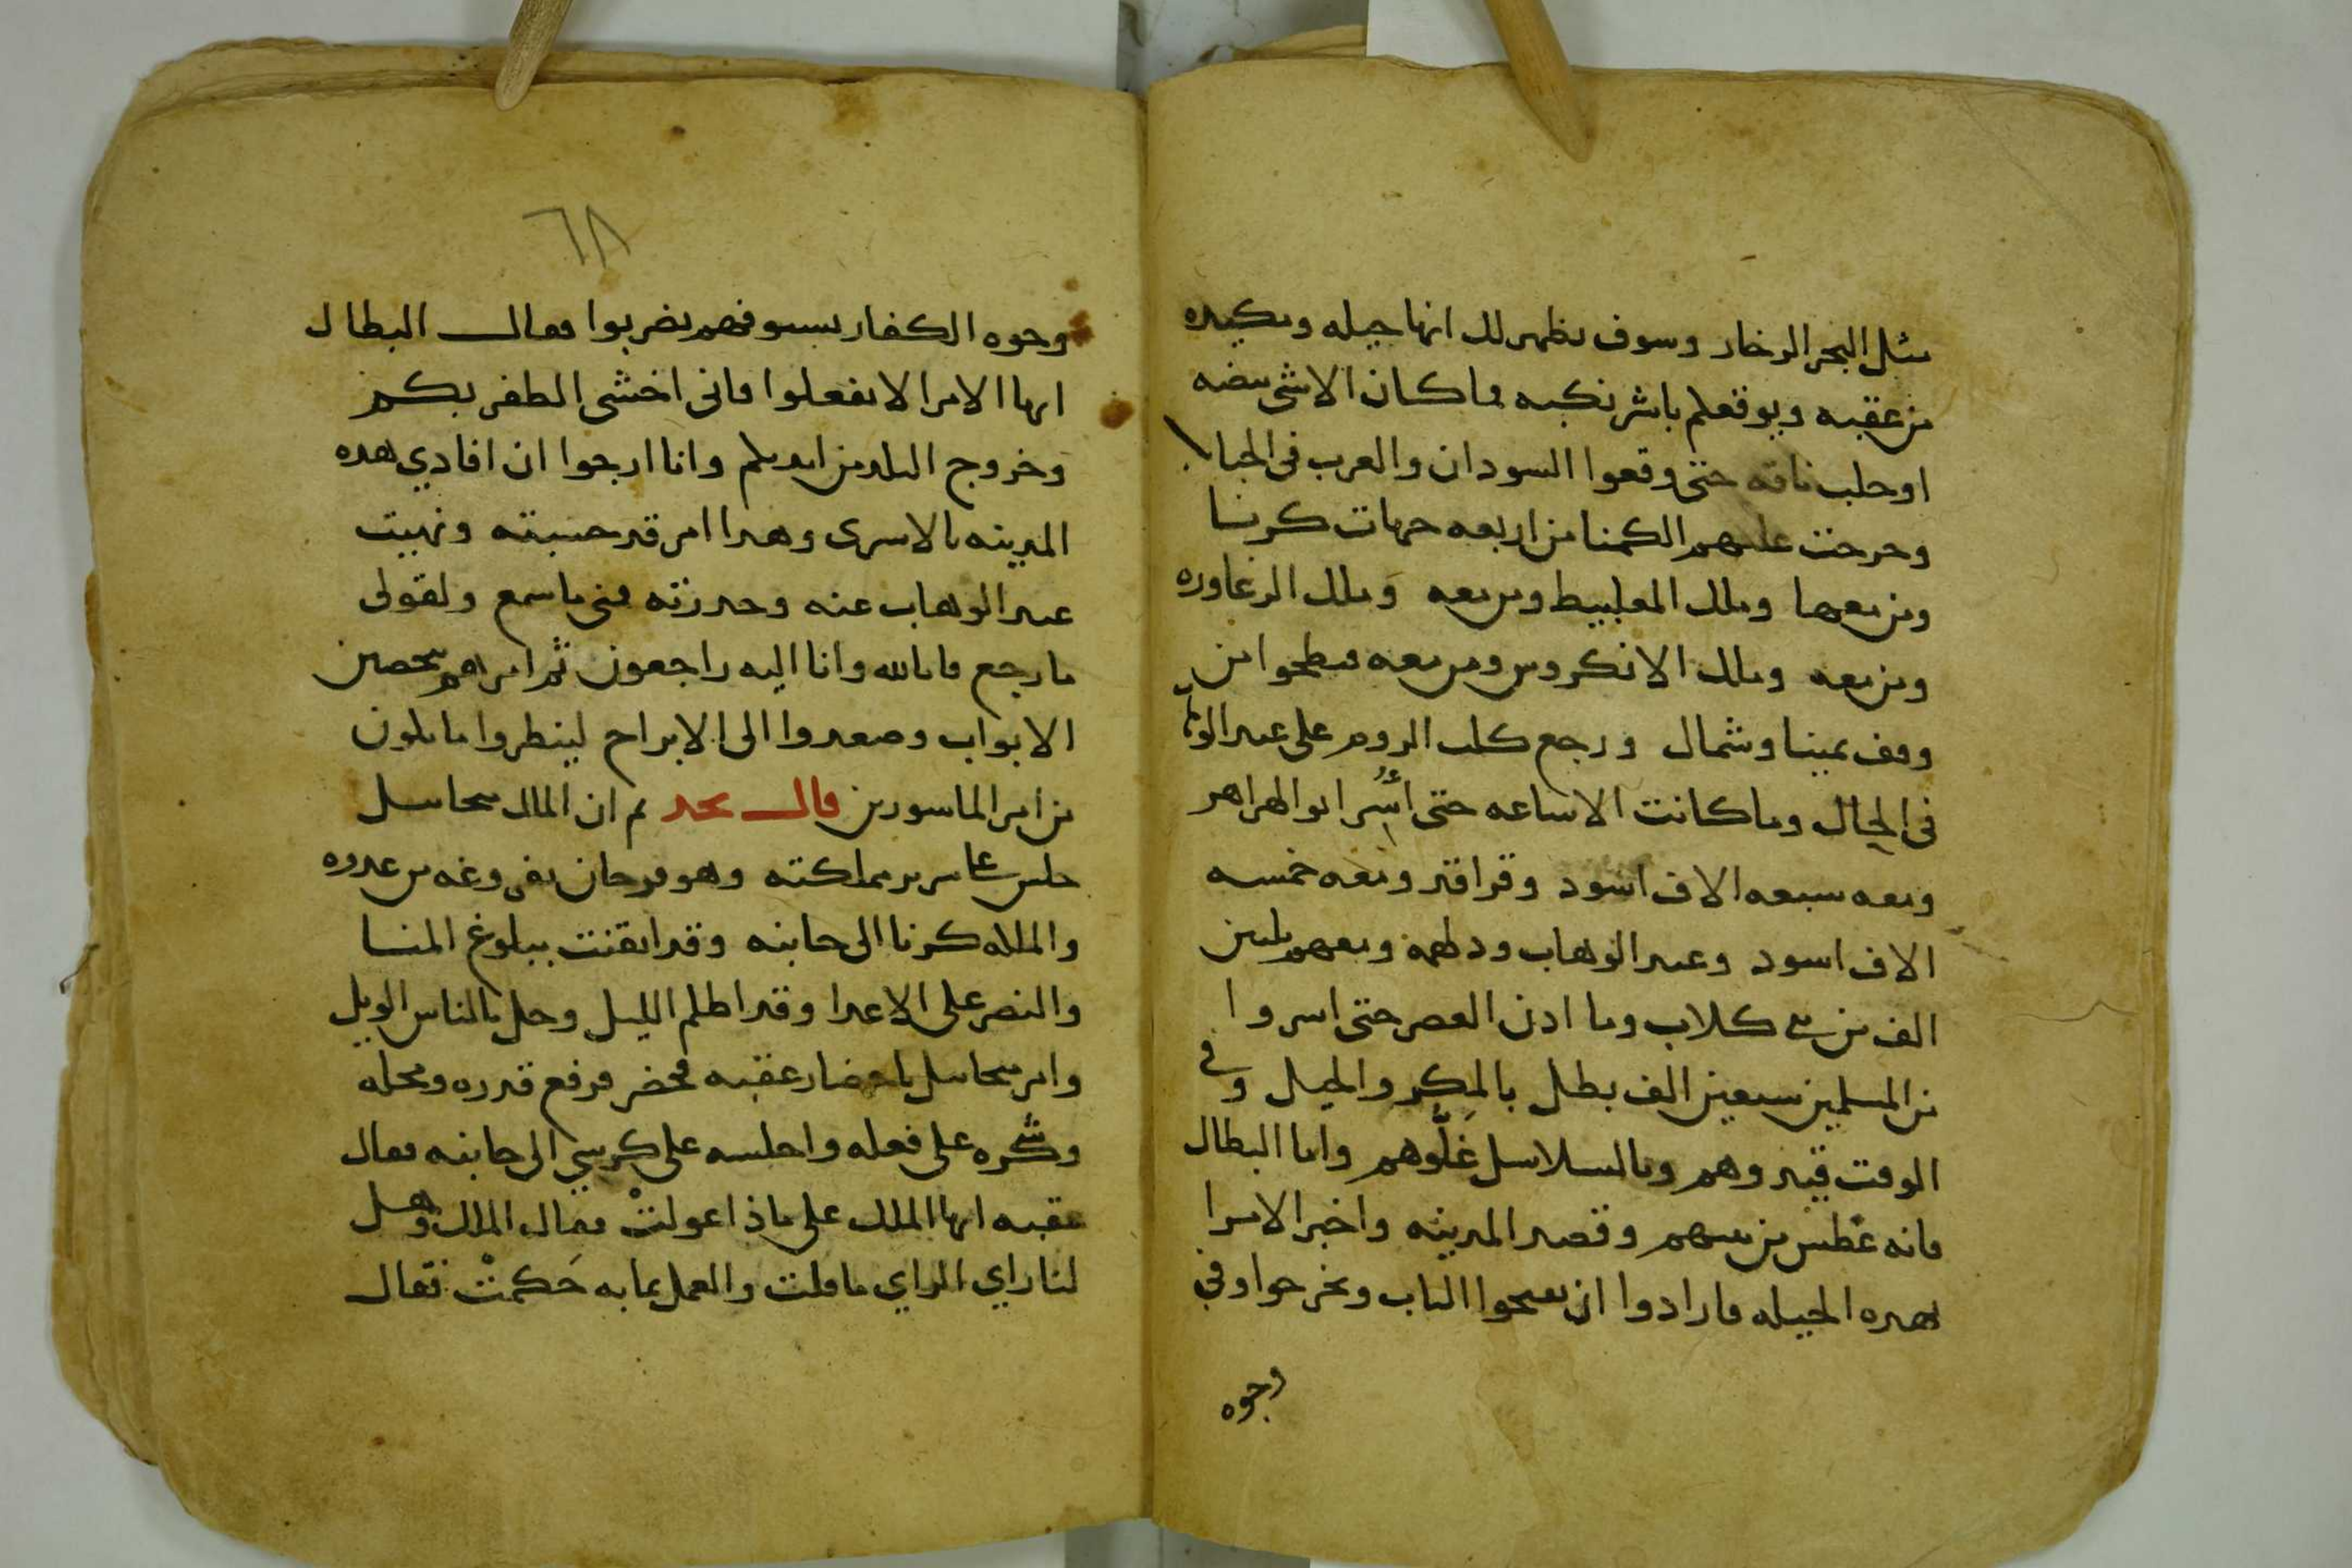 مثل البحر الزخار وسوف يظهر لك انها حيله ومكيده
من عقبه ويوقعكم باشر نكبه فما كان الا شى بيضه
او حلب ناقه حتى وقعوا السودان والعرب فى الحبال
وخرجت عليهم الكمنا من اربعه جهات كرنسا
ومن معها وملك المغلبيط ومن معه وملك الزغاوره
ومن معه وملك الانكروس ومن معه فبطحوا من
وقف يمينا وشمال ورجع كلب الروم على عبد الوهاب
فى الحال وما كانت الا ساعه حتى أُسِر ابو الهزاهز
ومعه سبعه الاف اسود وقراقنه ومعه خمسه
الاف اسود وعبد الوهاب ودلهمه ومعهم ثلثين
الف من بنى كلاب وما اذن العصر حتى اسروا
من المسلمين سبعين الف بطل بالمكر والحيل وفى
الوقت قيدوهم وبالسلاسل غَلُّوهم واما البطال
فانه غطس من بينهم وقصد المدينه واخبر الامرا
بهذه الحيله فارادوا ان يفتحوا الباب ويخرجوا وفى
وجوه
٦٨
وجوه الكفار بسيوفهم يضربوا فقال البطال
ايها الامرا لا تفعلوا فانى اخشى الظفر بكم
وخروج البلد من ايديكم وانا ارجوا ان افادي هذه
المدينه بالاسرى وهذا امر قد حسبته ونهيت
عبد الوهاب عنه وحذرته فى ما سمع ولقولى
ما رجع فانا لله وانا اليه راجعون ثم امرهم بتحصين
الابواب وصعدوا الى الابراج لينظروا ما يكون
من امر الماسورين قال نجد ثم ان الملك ميخاييل
جلس على سرير مملكته وهو فرحان بفروغه من عدوه
والملكه كرنا الى جانبه وقد ايقنت ببلوغ المنا
والنصر على الاعدا وقد اظلم الليل وحل بالناس الويل
وامر ميخاييل باحضار عقبه فحضر فرفع قدره ومحله
وشكره على فعله واجلسه على كرسي الى جانبه فقال
عقبه ايها الملك على ماذا عولتْ فقال الملك وهل
لنا راي الراي ما قلت والعمل بما به حَكمتْ فقال